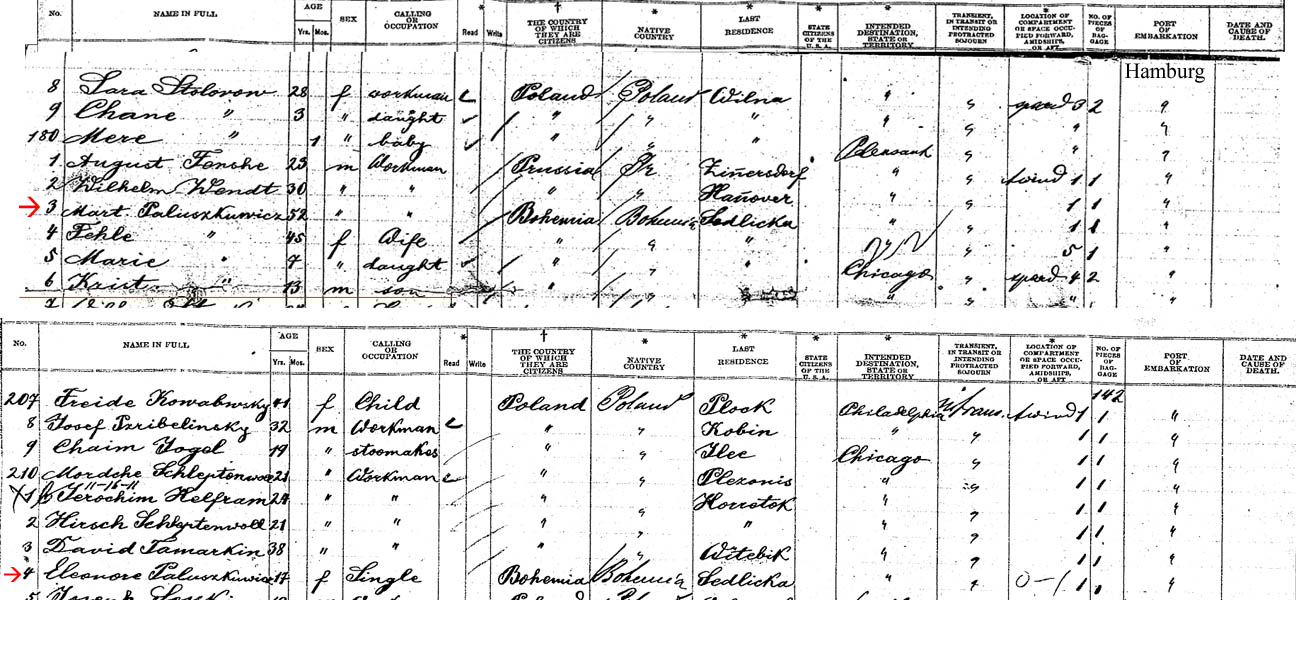 No. NAME IN FULL AGE Yrs. Mos. SEX CALLING OR OCCUPATION * Read Write † THE COUNTRY OF WHICH THEY ARE CITIZENS * NATIVE COUNTRY * LAST RESIDENCE * STATE CITIZENS OF THE U. S. A. INTENDED DESTINATION, STATE OR TERRITORY TRANSIENT, IN TRANSIT OR INTENDING PROTRACTED SOJOURN * LOCATION OF COMPARTMENT OR SPACE OCCUPIED FORWARD, AMIDSHIPS, OR AFT. NO. OF PIECES OF BAGGAGE PORT OF EMBARKATION DATE AND CAUSE OF DEATH.
Hamburg
8 Sara Stolorow 28 f workman Poland Poland Wilna " " 3 2 "
9 Chane " 3 " daught " " " " " " "
180 Mere " 1 " baby " " " " " "
1 August Fenske 23 m Workman Prussia Pr Zinersdorf " 1 1 "
2 Wilhelm Wendt 30 " " " " Hanover " " 1 1 "
3 Mart. Paluszkuwicz 52 " " Bohemia Bohemia Sedlicka " " 1 1 "
4 Fehle " 45 f Wife " " " N/N " 5 1 "
5 Marie " 7 " daught " " Chicago " 4 2 "
6 " 13 m son " " " " " "
No. NAME IN FULL AGE Yrs. Mos. SEX CALLING OR OCCUPATION * Read Write † THE COUNTRY OF WHICH THEY ARE CITIZENS * NATIVE COUNTRY * LAST RESIDENCE * STATE CITIZENS OF THE U. S. A. INTENDED DESTINATION, STATE OR TERRITORY TRANSIENT, IN TRANSIT OR INTENDING PROTRACTED SOJOURN * LOCATION OF COMPARTMENT OR SPACE OCCUPIED FORWARD, AMIDSHIPS, OR AFT. NO. OF PIECES OF BAGGAGE PORT OF EMBARKATION DATE AND CAUSE OF DEATH.
142
207 Freide Kowabnsky 41 f Child Poland Poland Plock Philadelphia trans. 1 1 "
8 Josef Przibelinsky 32 m Workman " " Kobin " " 1 1 "
9 Chaim Jogel 19 " stoomakes " " Ilee Chicago " 1 1 "
210 Mordche Schleptenwoll 21 " Workman " " Plezonis " " 1 1 "
11-16-11
1 Jerochim Helfram 24 " " " " Horostok " " 1 1 "
2 Hirsch Schleptenwoll 21 " " " " " " " 1 1 "
3 David Tamarkin 38 " " " " Witebik " " 1 1 "
4 Eleonore Paluszkuwicz 17 f Single Bohemia Bohemia Sedlicka " " 0-1 1 1 "